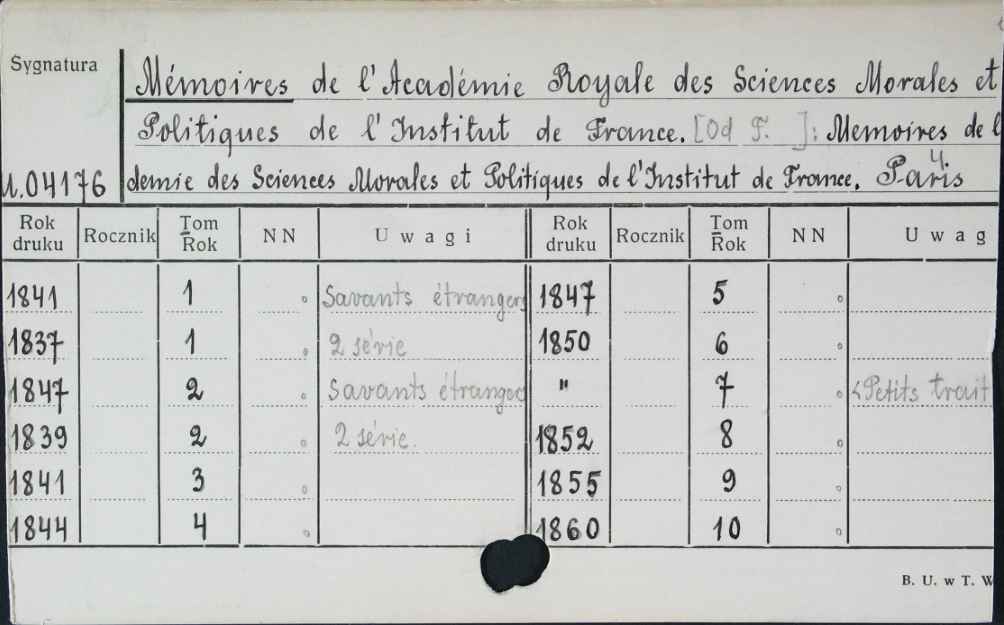 Sygnatura
Mémoires de l'Académie Royale des Sciences Morales et
Politiques de l'Institut de France. [Od T. ]: Memoires de l
4.
U.04176 demie des Sciences Morales et Politiques de l'Institut de France. Paris
Rok druku Rocznik Tom Rok NN Uwagi Rok druku Rocznik Tom Rok NN Uwag
1841 1 Savants étrangers 1847 5
1837 1 2 série 1850 6
1847 2 Savants étrangers " 7 <Petits trait
1839 2 2 série. 1852 8
1841 3 1855 9
1844 4 1860 10
B. U. w T. W